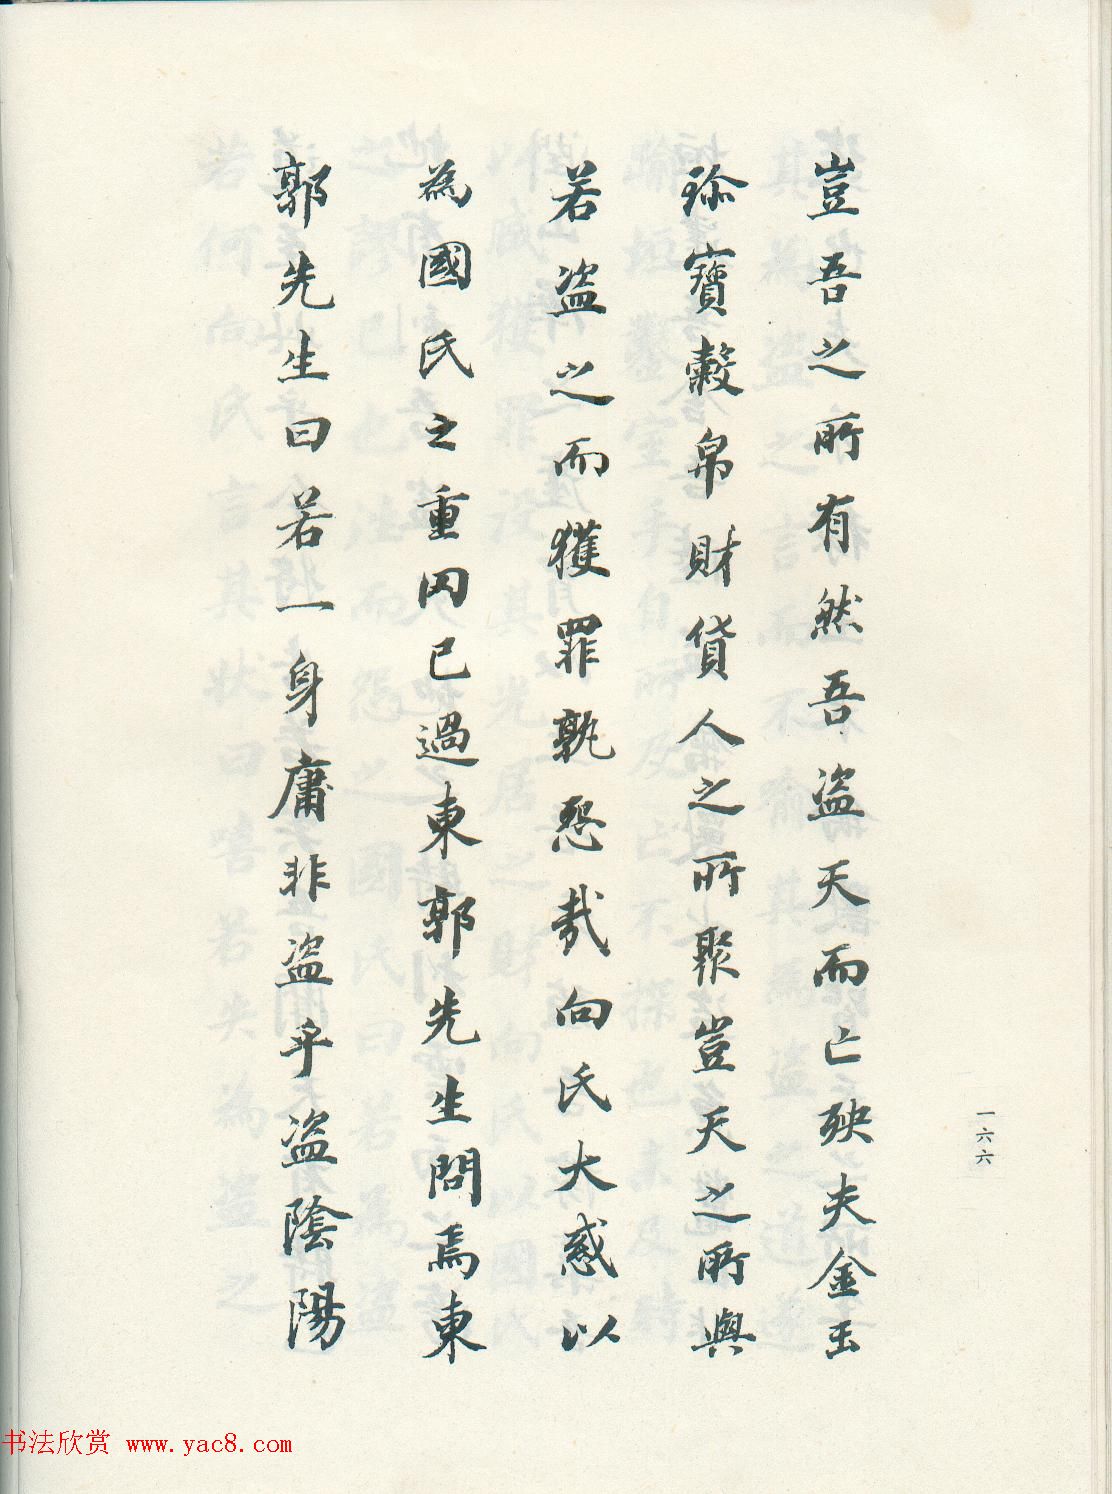 豈吾之所有然吾盗天而亡殃夫金玉
珎寶穀帛財貨人之所聚豈天之所與
若盗之而獲罪孰怨哉向氏大惑以
為國氏之重罔已過東郭先生問焉東
郭先生曰若一身庸非盗乎盗陰陽
一六六
书法欣赏 www.yac8.com